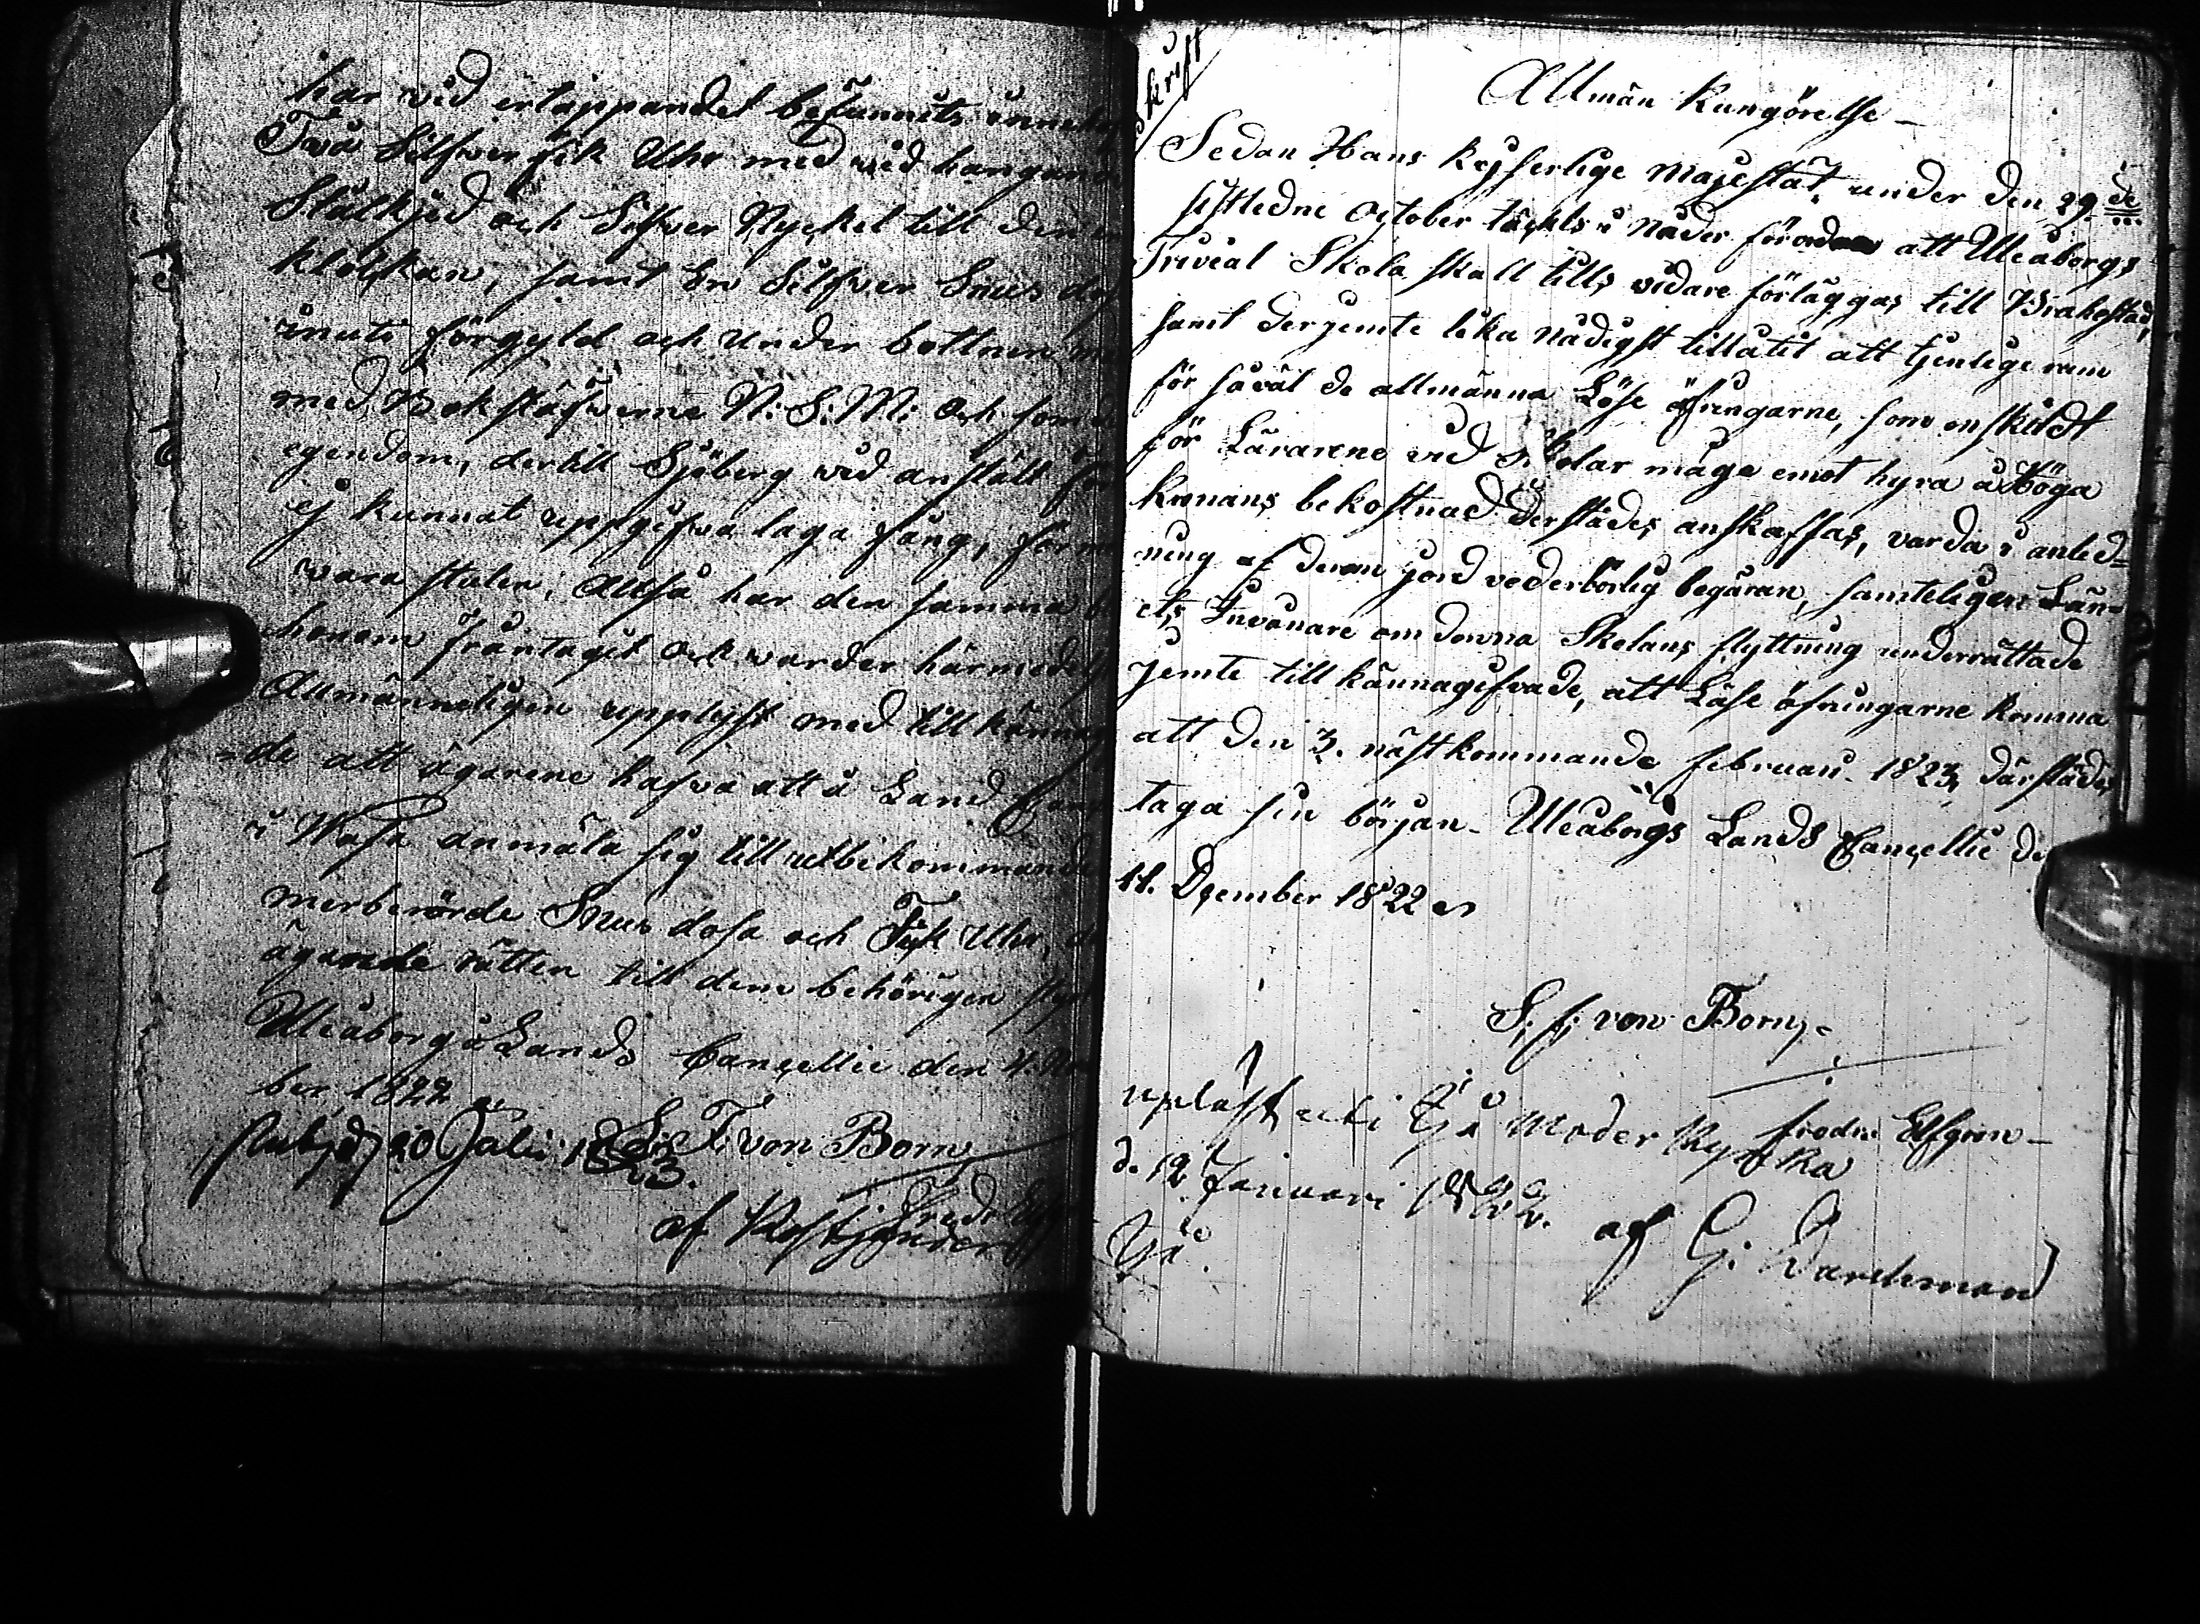 har vid ertappandet befunnits inneha
Två Silfver fik Uhr med vid hängan
Stålkjed och Silfver Nyckel till den
klockan, samt En Silfver Snus do
inuti förgyld och under bottnen
med Bokstäfwerne N: S: M: Och som
egendom, dertill Sjöberg wid anstält
ej kunnat uppgifva laga fång, för
wara stulen; Altså har den samma
honom fråntagit och warder härmedelst
Allmänneligen upplyst med tillkännag
-de att ägarene hafva att å Land
i Wasa anmäla sig till utbekommande
merberörde Snus dosa och Fik Uhr,
ägande rätten till dem behörigen
Uleåborgs Lands Cancellie den 4. No
ber 1822
S. F. von Born
20 Julii 1823.
Fredr
af
skrift
Allmän Kungörelse
Sedan Hans Kejserlige Majestät under den 29de
sistledne October täckts i Nåder förorda att Uleåborgs
Trivial Skola skall tills vidare förläggas till Brahestad,
samt derjemte lika Nådigst tillåtit att tjenlige rum
för såväl de allmänna Läse öfningarne, som enskildt
för Lärarene vid Skolar måge emot hyra å Höga
Kronans bekostnad derstädes anskaffas, varda i anled-
ning af derom gjord vederbörlig begäran, samteligen Län-
ets Invånare om denna Skolans flyttning underrättade
jemte tillkännagifvade, att Läse öfningarne komma
att den 3. nästkommande februari 1823 därstädes
taga sin början. Uleåborgs Lands Cancellie de
11. December 1822
S. f. von Born
fredr Elfgren
upläst uti Ijå Moder Kyrka
d. 12 Januari 182
Ijå. af G. Wardeman